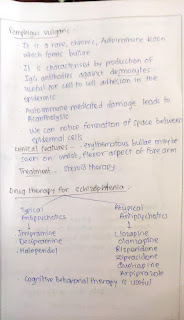 Pemphigus Vulgaris:-
- It is a rare, chronic, Autoimmune lesion
which forms bullae
- It is characterised by production of
IgG antibodies against desmocytes
useful for cell to cell adhesion in the
epidermis
Autoimmune mediated damage leads to
Acantholysis
We can notice formation of space between
epidermal cells
Clinical features - erythematous bullae may be
seen on waist, flexor aspect of forearm
Treatment - steroid therapy
Drug therapy for schizophrenia
Typical
Antipsychotics
Atypical
Antipsychotics
Imipramine
Desipramine
Haloperidol
Olanzapine
Risperidone
Ziprasidone
Quetiapine
Aripiprazole
- Cognitive Behavioral therapy is useful